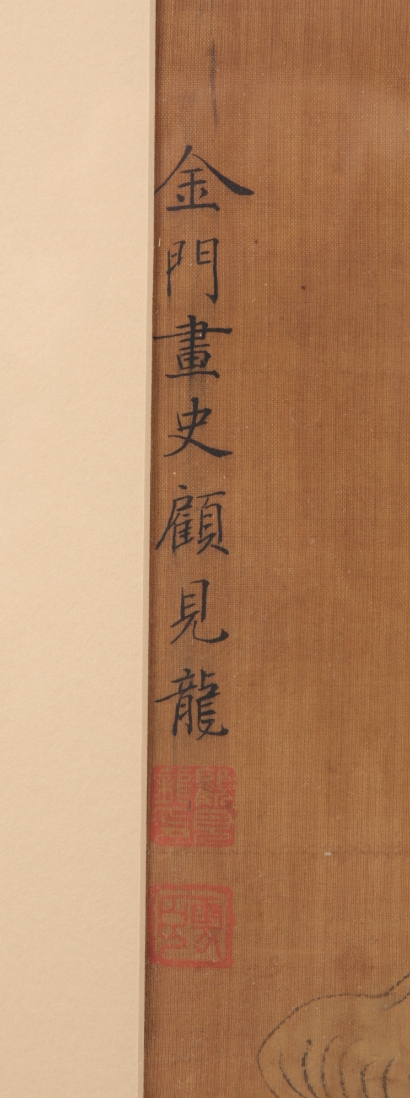 金門畫史顧見龍